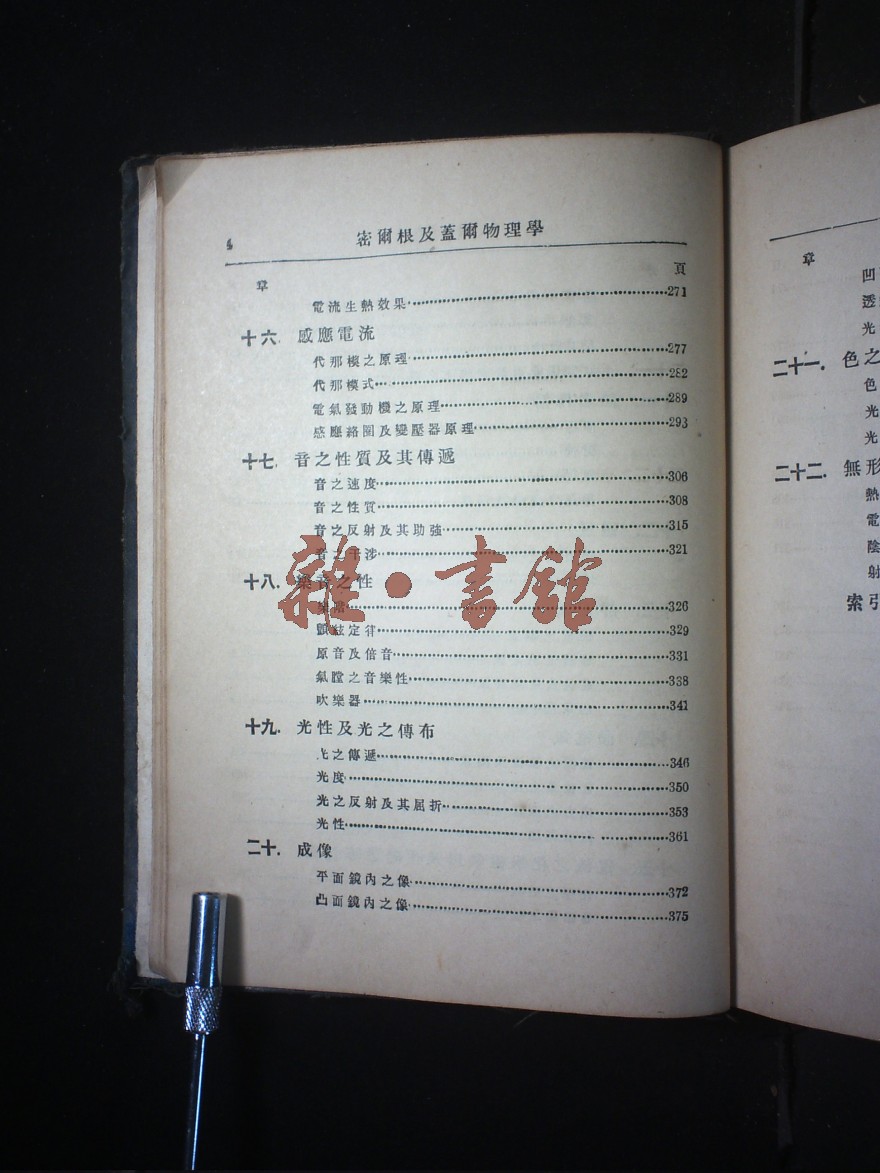 4
密爾根及蓋爾物理學
章 頁
電流生熱效果 271
十六. 感應電流
代那模之原理 277
代那模式 282
電氣發動機之原理 289
感應絡圈及變壓器原理 293
十七. 音之性質及其傳遞
音之速度 306
音之性質 308
音之反射及其助強 315
音之干涉 321
十八. 樂音之性
樂階 326
顫絃定律 329
原音及倍音 331
氣膛之音樂性 338
吹樂器 341
十九. 光性及光之傳布
光之傳遞 346
光度 350
光之反射及其屈折 353
光性 361
二十. 成像
平面鏡內之像 372
凸面鏡內之像 375
雜·書館
章
凹
透
光
二十一. 色之
色
光
光
二十二. 無形
熱
電
陰
射
索引